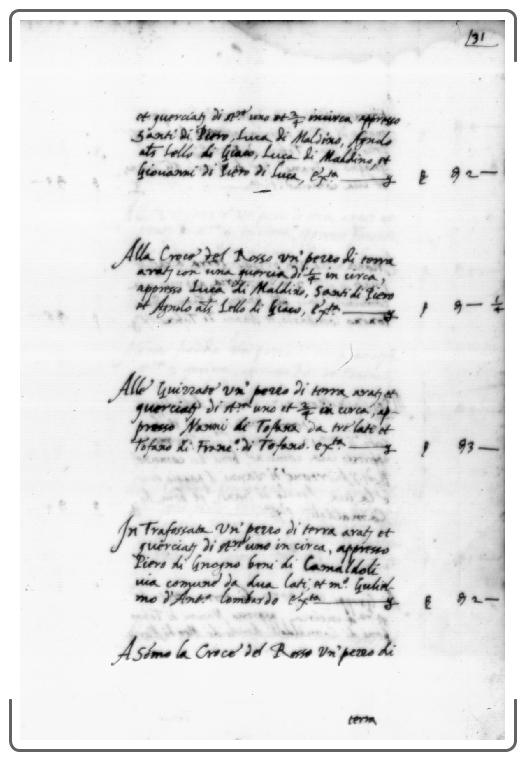 31
et querciatj di st.re uno et 2/4 incirca appresso
Santi di Piero, Luca di Maldino, Agnolo
als Lollo di Giaco, Luca di Maldino, et
Giovanni di Piero di Luca, ex.ta 2 —
Alla Croce del Rosso un' pezzo di terra
aratj con una quercia di 1/4 in circa,
appresso Luca di Maldino, Santi di Piero
et Agnolo als Lollo di Giaco, ex.ta — 1/4
Alle Guizzate un' pezzo di terra aratj et
querciatj di st.re uno et 2/4 in circa, ap-
presso Nanni di Tofano da tre lati et
Tofano di Franc.o di Tofano. ex.ta 3 —
In Trafossata un' pezzo di terra aratj et
querciatj di st.re uno in circa, appresso
Piero di Gnogno beni di Camaldoli
via comune da dua lati, et m.o Guliel-
mo d'Ant.o lombardo ex.ta 2 —
A sōmo la Croce del Rosso un' pezzo di
terra